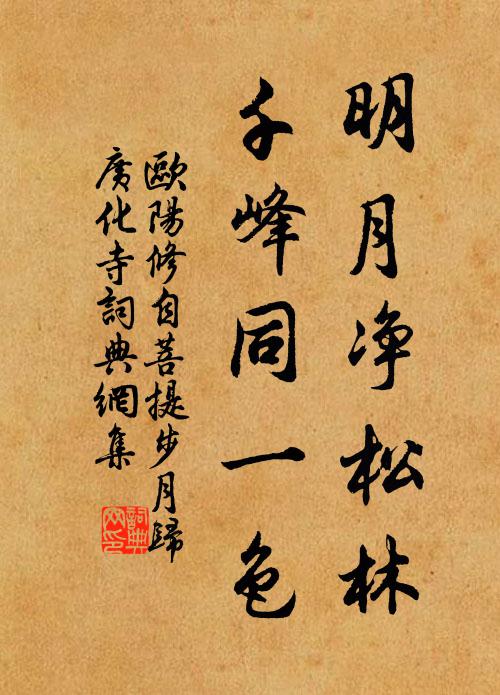 明月净松林
千峰同一色
歐陽修自菩提步月歸
廣化寺詞典網集
詞典網印